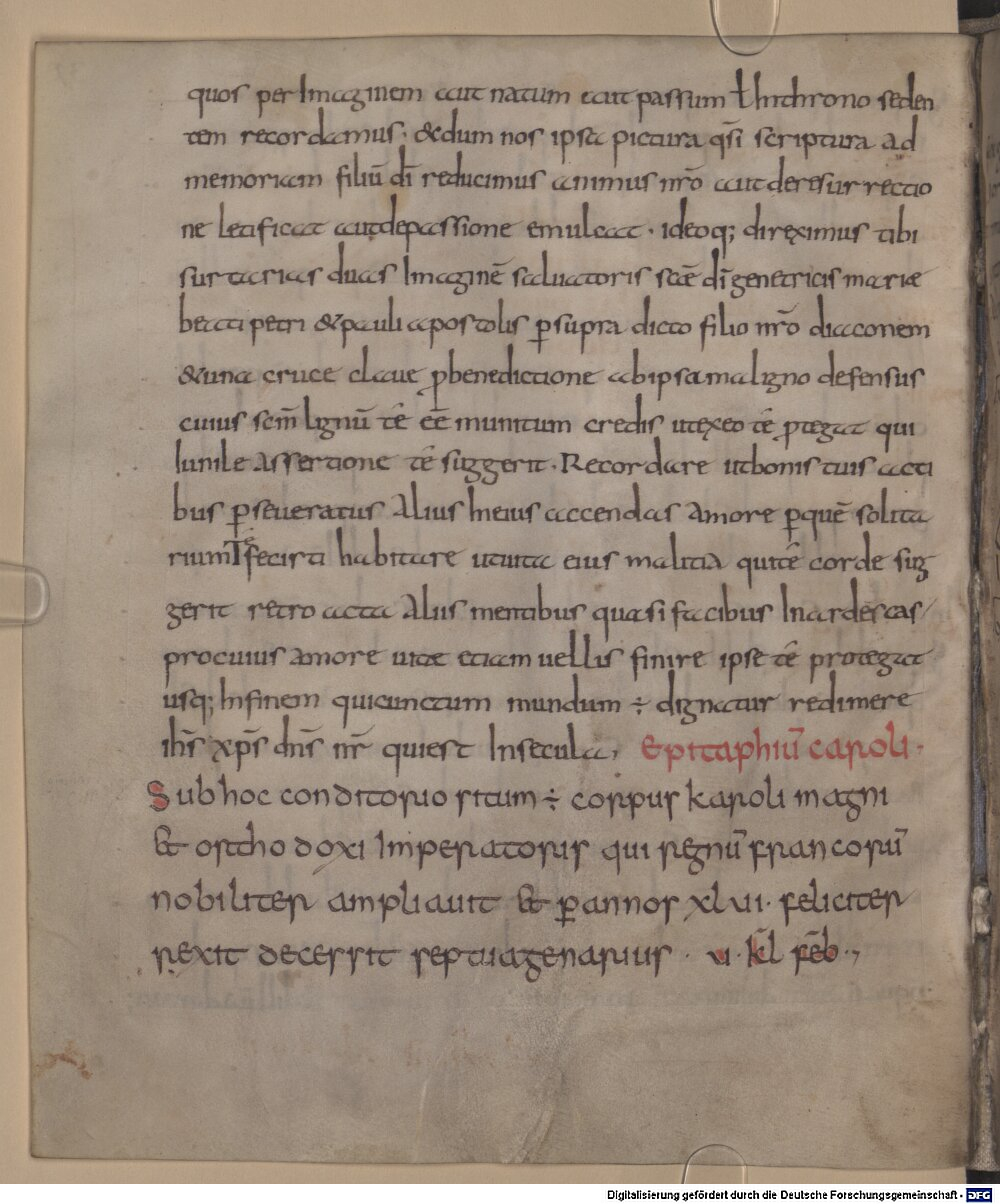 quos per Imaginem aut natum aut passum ł In throno seden
tem recordamus; & dum nos ipsa pictura qsi scriptura ad
memoriam filiū dī reducimus animus nr̄o aut de resurrectio
ne letificat aut de passione emulcat. ideoq; direximus tibi
surtarias duas Imaginē saluatoris scāē dī genetricis mariæ
beati petri & pauli apostolis p̄ supra dicto filio nr̄o diaconem
& una cruce claue pbenedictione ab ipsa maligno defensus
cuius scm̄ lignū tē eē munitum credis ut ex eo tē protegat qui
Iunile assertione tē suggerit. Recordare ut bonis tuis acti
bus p̄seueratus alius In eius accendas amore p̄ quē solita
rium Tē fecisti habitare ut uita eius malitia qui tē corde sug
gerit retro acta alius mentibus quasi facibus Inardescas
pro cuius amore uitæ etiam uellis finire ipse tē protegat
usq; In finem qui cunctum mundum ÷ dignatur redimere
ihs̄ xp̄s dn̄s nr̄ qui est In secula, Epitaphiū caroli.
Sub hoc conditorio situm ÷ corpus karoli magni
& orthodoxi Imperatoris qui regnū francorū
nobiliter ampliauit & p̄ annos xlvi. feliciter
rexit decessit septuagenarius. vi. kl̄ feb̄.,
Digitalisierung gefördert durch die Deutsche Forschungsgemeinschaft - DFG